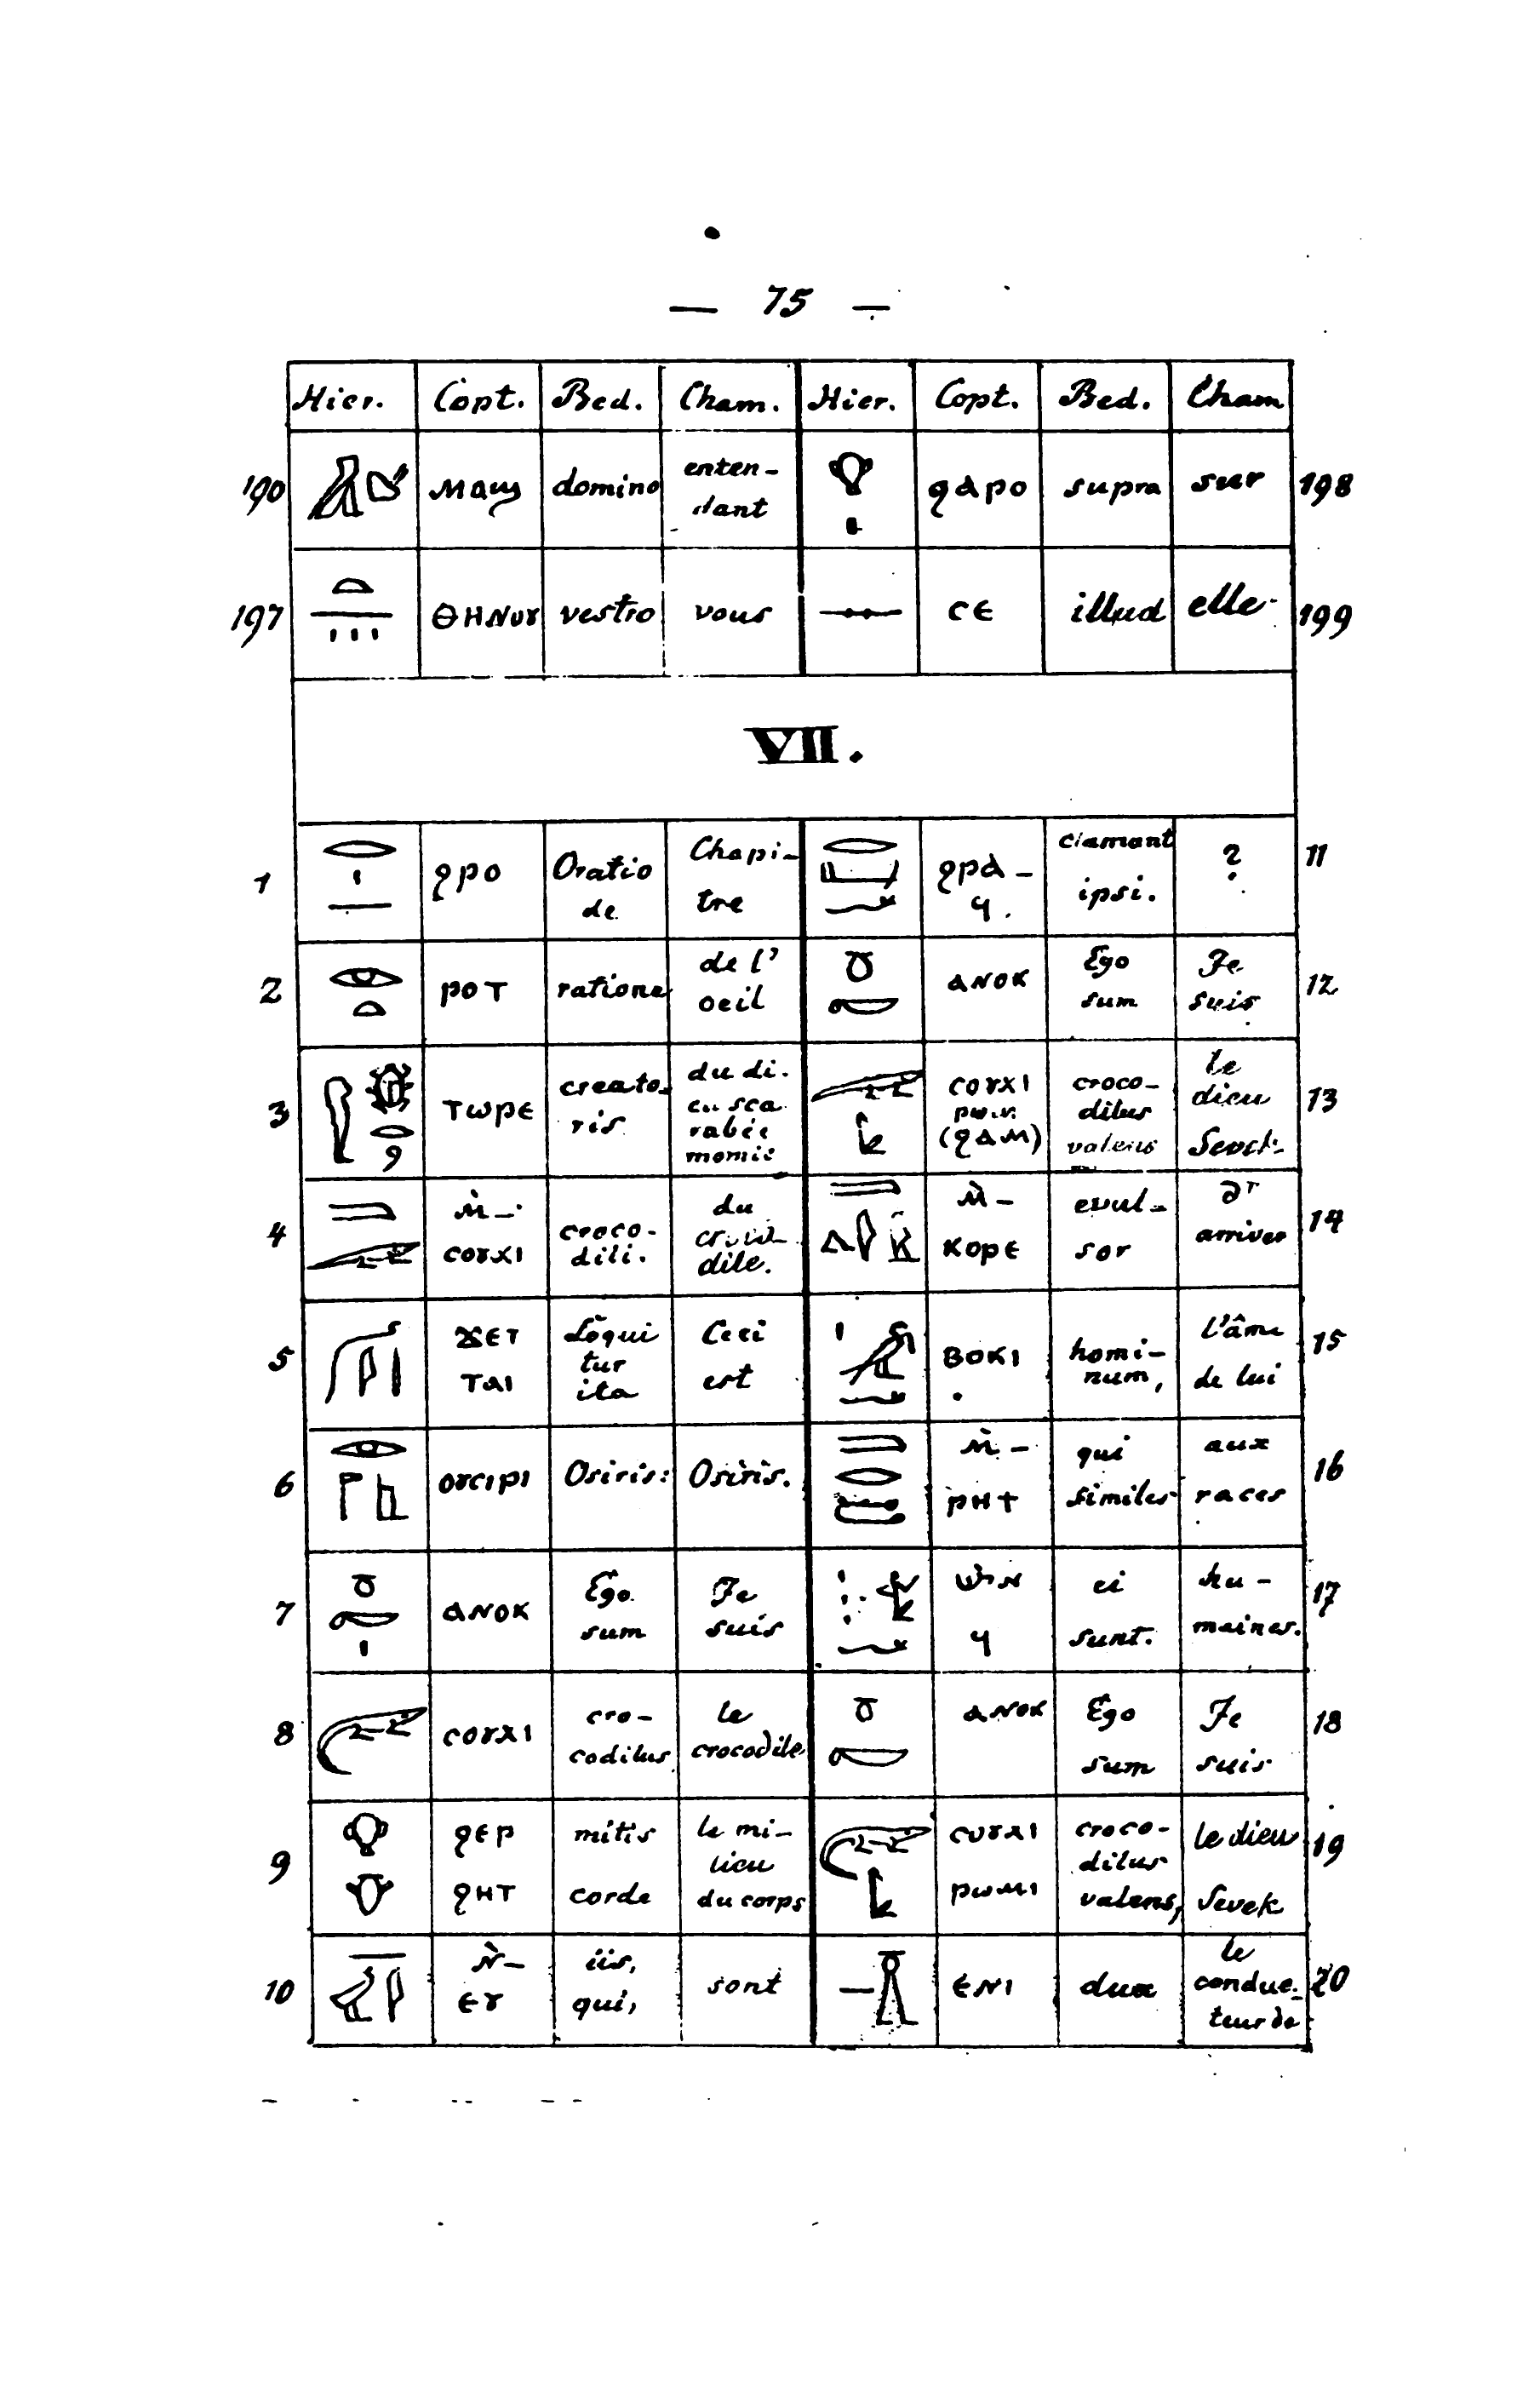 — 75 —
Hier. Copt. Bed. Cham. Hier. Copt. Bed. Cham
190 ⲙⲁϣ domino enten-dant ϩⲁⲣⲟ supra sur 198
197 ⲑⲏⲛⲟⲩ vestro vous ⲥⲉ illud elle 199
VII.
1 ϩⲣⲟ Oratio de Chapi-tre ϩⲣⲁ-ϥ. clamant ipsi. ? 11
2 ⲣⲟⲧ ratione de l' oeil ⲁⲛⲟⲕ Ego sum Je suis 12
3 ⲧⲱⲣⲉ creato-ris du di-eu sca rabée momie ⲥⲟⲩⲭⲓ (ϩⲁⲙ) croco-dilus valens le dieu 13
4 ⲙ̀-ⲥⲟⲩⲭⲓ croco-dili. du croco-dile. ⲙ̀-ⲕⲟⲣⲉ evul-sor arriver 14
5 ϫⲉⲧ ⲧⲁⲓ Loqui tur ita Ceci est ⲃⲟⲕⲓ homi-num, l'âme de lui 15
6 ⲟⲩⲥⲓⲣⲓ Osiris: Osiris. ⲙ̀-ⲣⲏϯ qui similes aux races 16
7 ⲁⲛⲟⲕ Ego sum Je suis ϥ ei sunt. hu-maines. 17
8 ⲥⲟⲩⲭⲓ cro-codilus le crocodile ⲁⲛⲟⲕ Ego sum Je suis 18
9 ϩⲉⲣ ϩⲏⲧ mitis corde le mi-lieu du corps ⲥⲟⲩⲭⲓ ⲣⲱⲙⲓ croco-dilus valens, le dieu Sevek 19
10 ⲛ̀-ⲉⲩ iis, qui, sont ⲉⲛⲓ dux le conduc-teur de 20